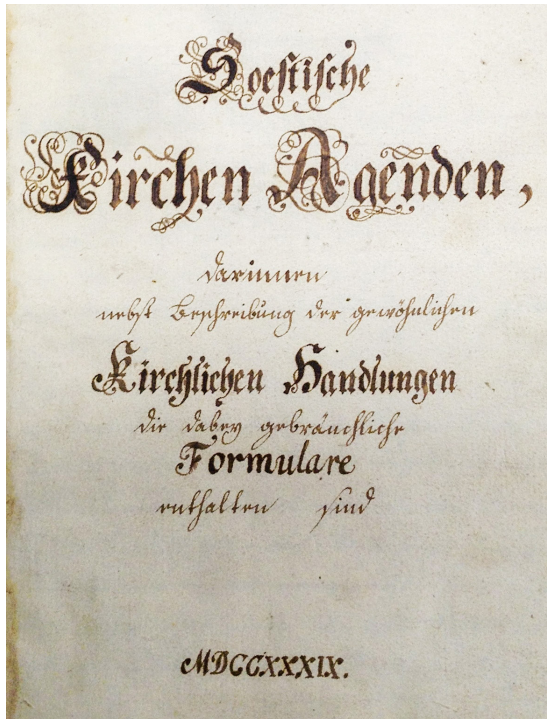 Soestische
Kirchen Agenden,
darinnen
nebst Beschreibung der gewöhnlichen
Kirchlichen Handlungen
die dabey gebräuchliche
Formulare
enthalten sind
MDCCXXXIX.